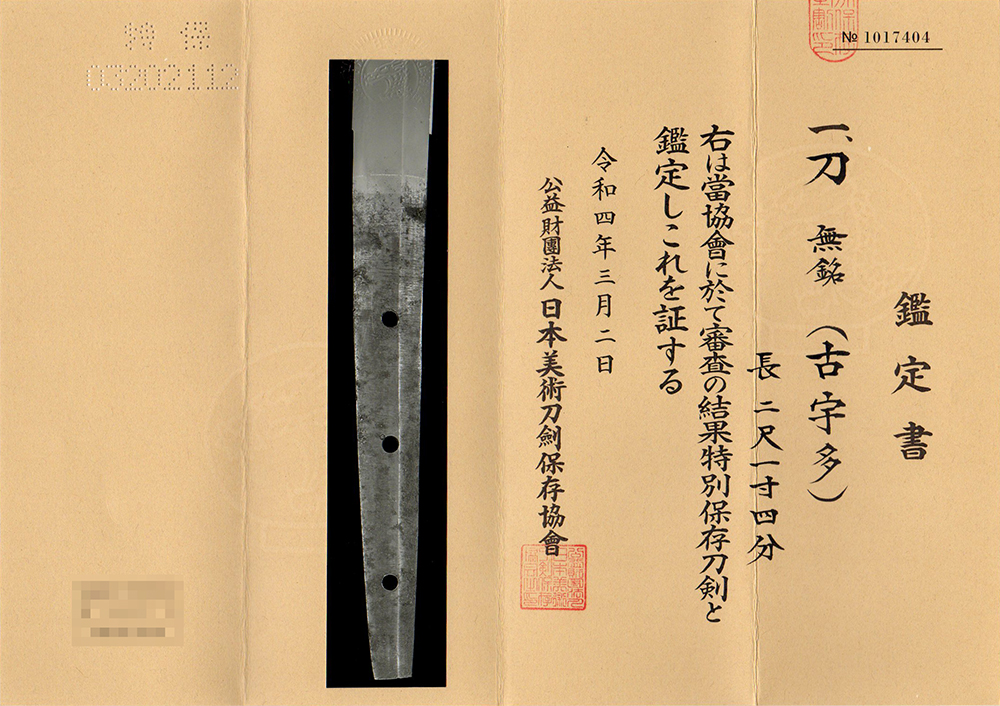 № 1017404
鑑定書
一、刀 無銘 (古宇多)
長 二尺一寸四分
右は當協會に於て審査の結果特別保存刀剣と
鑑定しこれを証する
令和四年三月二日
公益財團法人 日本美術刀劍保存協會
特保
03202112